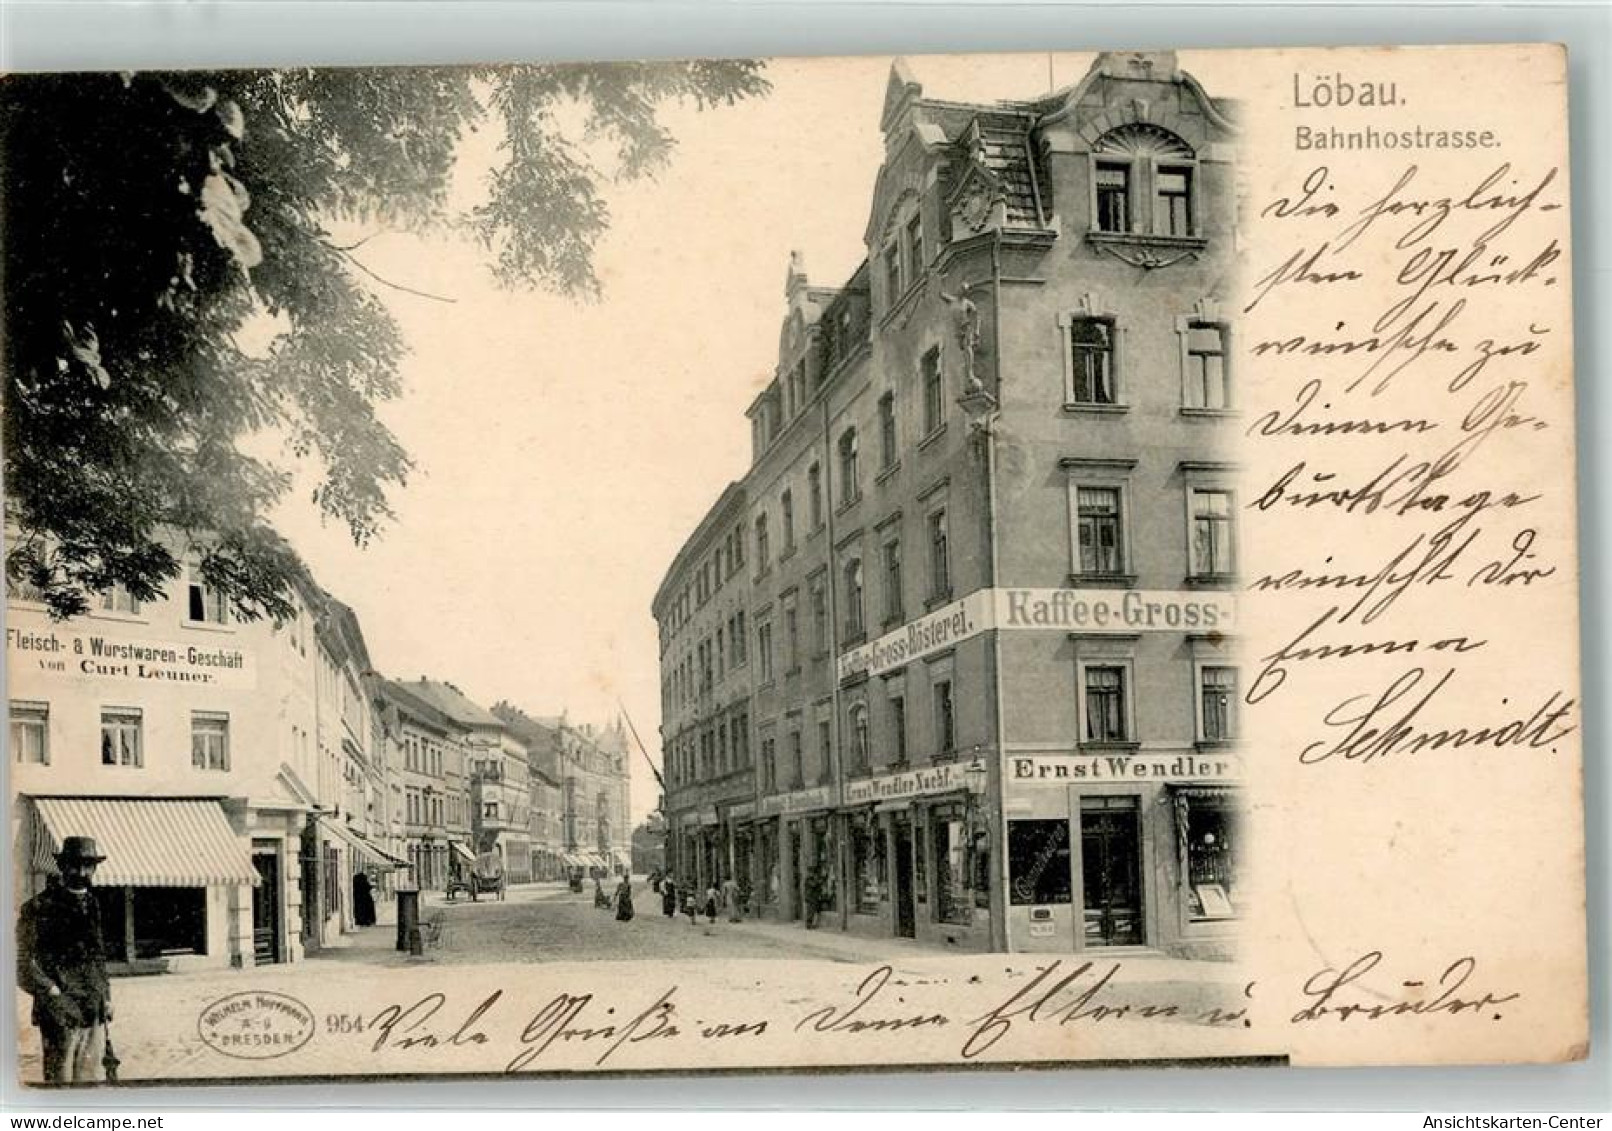 Löbau.
Bahnhostrasse.
Die herzlich-
sten Glück-
wünsche zu
Deinem Ge-
burtstage
wünscht Dir
Emma
Schmidt.
Kaffee-Gross-
Kaffee-Gross-Rösterei.
Fleisch- & Wurstwaren-Geschäft
von Curt Leuner.
Ernst Wendler Nachf.
Ernst Wendler N
WILHELM HOFFMANN
A-G
DRESDEN
954
Viele Grüße an Deine Eltern u. Brüder.
Ansichtskarten-Center